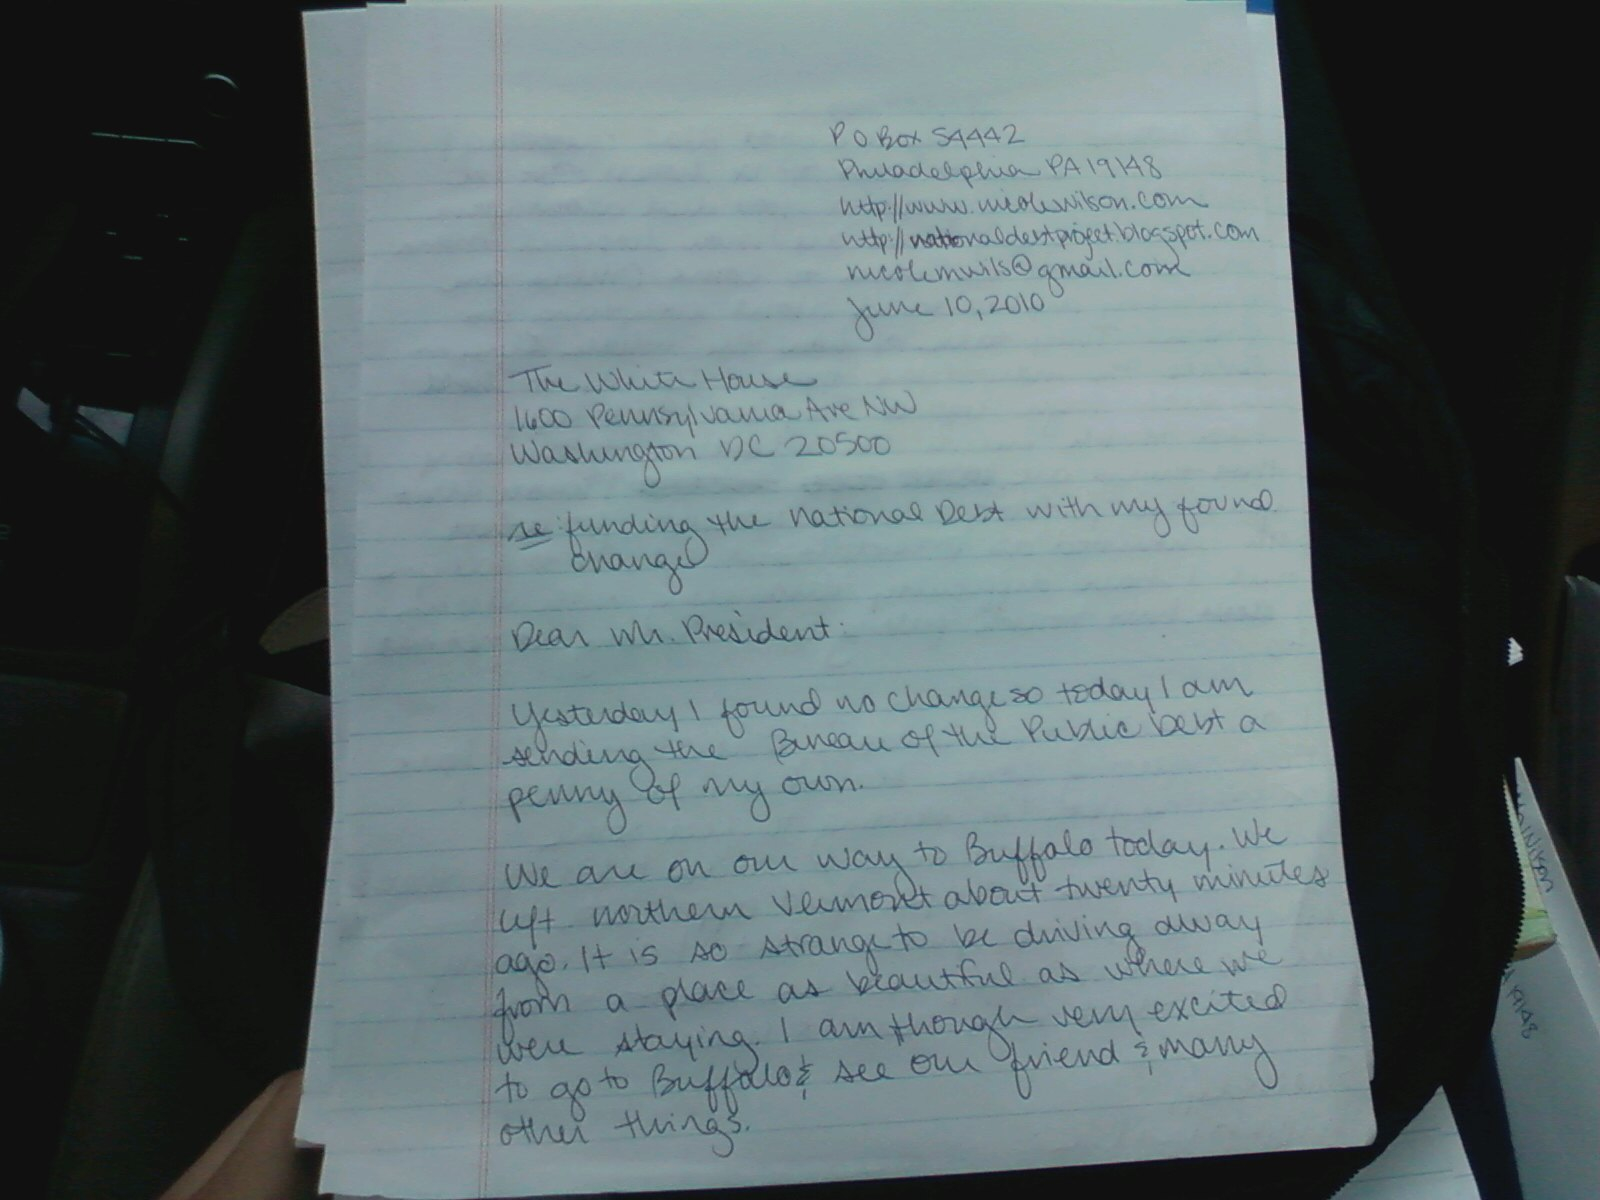 P O Box 54442
Philadelphia PA 19148
http://www.nicolewilson.com
http://nationaldebtproject.blogspot.com
nicolemwils@gmail.com
June 10, 2010
The White House
1600 Pennsylvania Ave NW
Washington DC 20500
re: funding the national Debt with my found
change
Dear Mr. President:
Yesterday I found no change so today I am
sending the Bureau of the Public Debt a
penny of my own.
We are on our way to Buffalo today. We
left northern Vermont about twenty minutes
ago. It is so strange to be driving away
from a place as beautiful as where we
were staying. I am though very excited
to go to Buffalo & see our friend & many
other things.
Wilson
19148